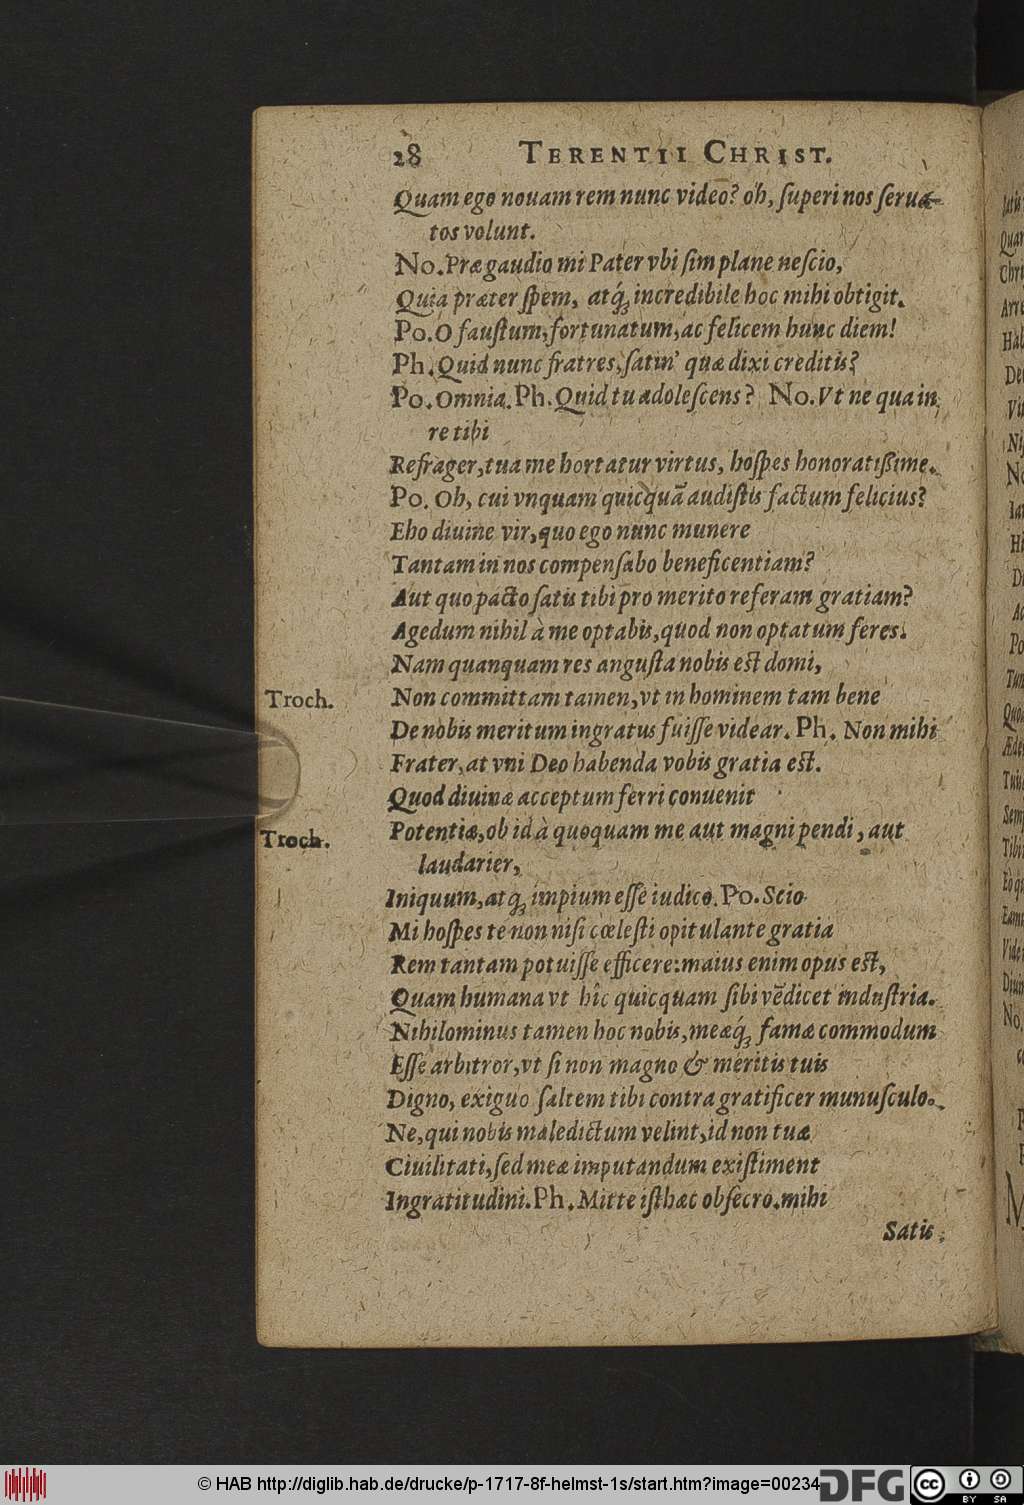 28 TERENTII CHRIST.
Quam ego nouam rem nunc video? oh, ſuperi nos ſerua-
tos volunt.
No. Præ gaudio mi Pater vbi ſim plane neſcio,
Quia præter ſpem, atq́; incredibile hoc mihi obtigit.
Po. O fauſtum, fortunatum, ac felicem hunc diem!
Ph. Quid nunc fratres, ſatin' quæ dixi creditis?
Po. Omnia. Ph. Quid tu adoleſcens? No. Vt ne qua in
re tibi
Refrager, tua me hortatur virtus, hoſpes honoratißime.
Po. Oh, cui vnquam quicquã audiſtis factum felicius?
Eho diuine vir, quo ego nunc munere
Tantam in nos compenſabo beneficentiam?
Aut quo pacto ſatis tibi pro merito referam gratiam?
Agedum nihil à me optabis, quod non optatum feres.
Nam quanquam res anguſta nobis est domi,
Troch. Non committam tamen, vt in hominem tam bene
De nobis meritum ingratus fuiſſe videar. Ph. Non mihi
Frater, at vni Deo habenda vobis gratia est.
Quod diuinæ acceptum ferri conuenit
Troch. Potentiæ, ob id à quoquam me aut magni pendi, aut
laudarier,
Iniquum, atq; impium eſſe iudico. Po. Scio
Mi hoſpes te non niſi cœleſti opitulante gratia
Rem tantam potuiſſe efficere: maius enim opus est,
Quam humana vt hîc quicquam ſibi vẽdicet induſtria.
Nihilominus tamen hoc nobis, meæq́; famæ commodum
Eſſe arbitror, vt ſi non magno & meritis tuis
Digno, exiguo ſaltem tibi contra gratificer munuſculo.
Ne, qui nobis maledictum velint, id non tuæ
Ciuilitati, ſed meæ imputandum exiſtiment
Ingratitudini. Ph. Mitte iſthæc obſecro. mihi
Satis
© HAB http://diglib.hab.de/drucke/p-1717-8f-helmst-1s/start.htm?image=00234
DFG
cc BY SA